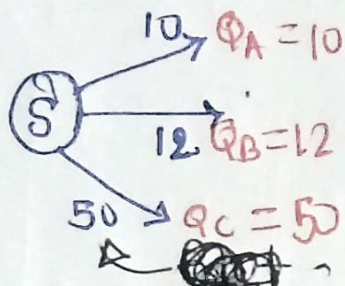 10 QA = 10
S
12 QB = 12
50 QC = 50